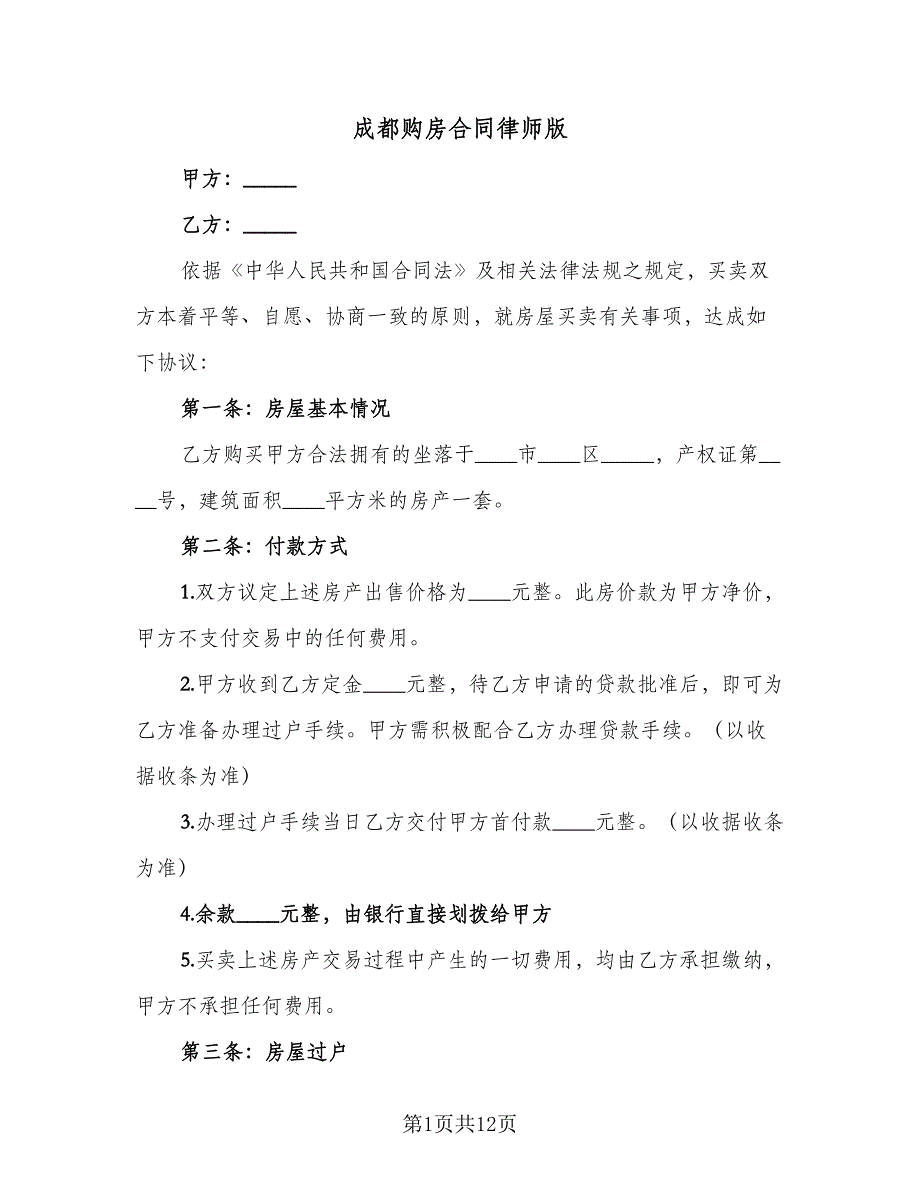 成都购房合同律师版
甲方：_____
乙方：_____
依据《中华人民共和国合同法》及相关法律法规之规定，买卖双
方本着平等、自愿、协商一致的原则，就房屋买卖有关事项，达成如
下协议：
第一条：房屋基本情况
乙方购买甲方合法拥有的坐落于____市____区_____，产权证第__
__号，建筑面积____平方米的房产一套。
第二条：付款方式
1.双方议定上述房产出售价格为____元整。此房价款为甲方净价，
甲方不支付交易中的任何费用。
2.甲方收到乙方定金____元整，待乙方申请的贷款批准后，即可为
乙方准备办理过户手续。甲方需积极配合乙方办理贷款手续。（以收
据收条为准）
3.办理过户手续当日乙方交付甲方首付款____元整。（以收据收条
为准）
4.余款____元整，由银行直接划拨给甲方
5.买卖上述房产交易过程中产生的一切费用，均由乙方承担缴纳，
甲方不承担任何费用。
第三条：房屋过户
第1页共12页